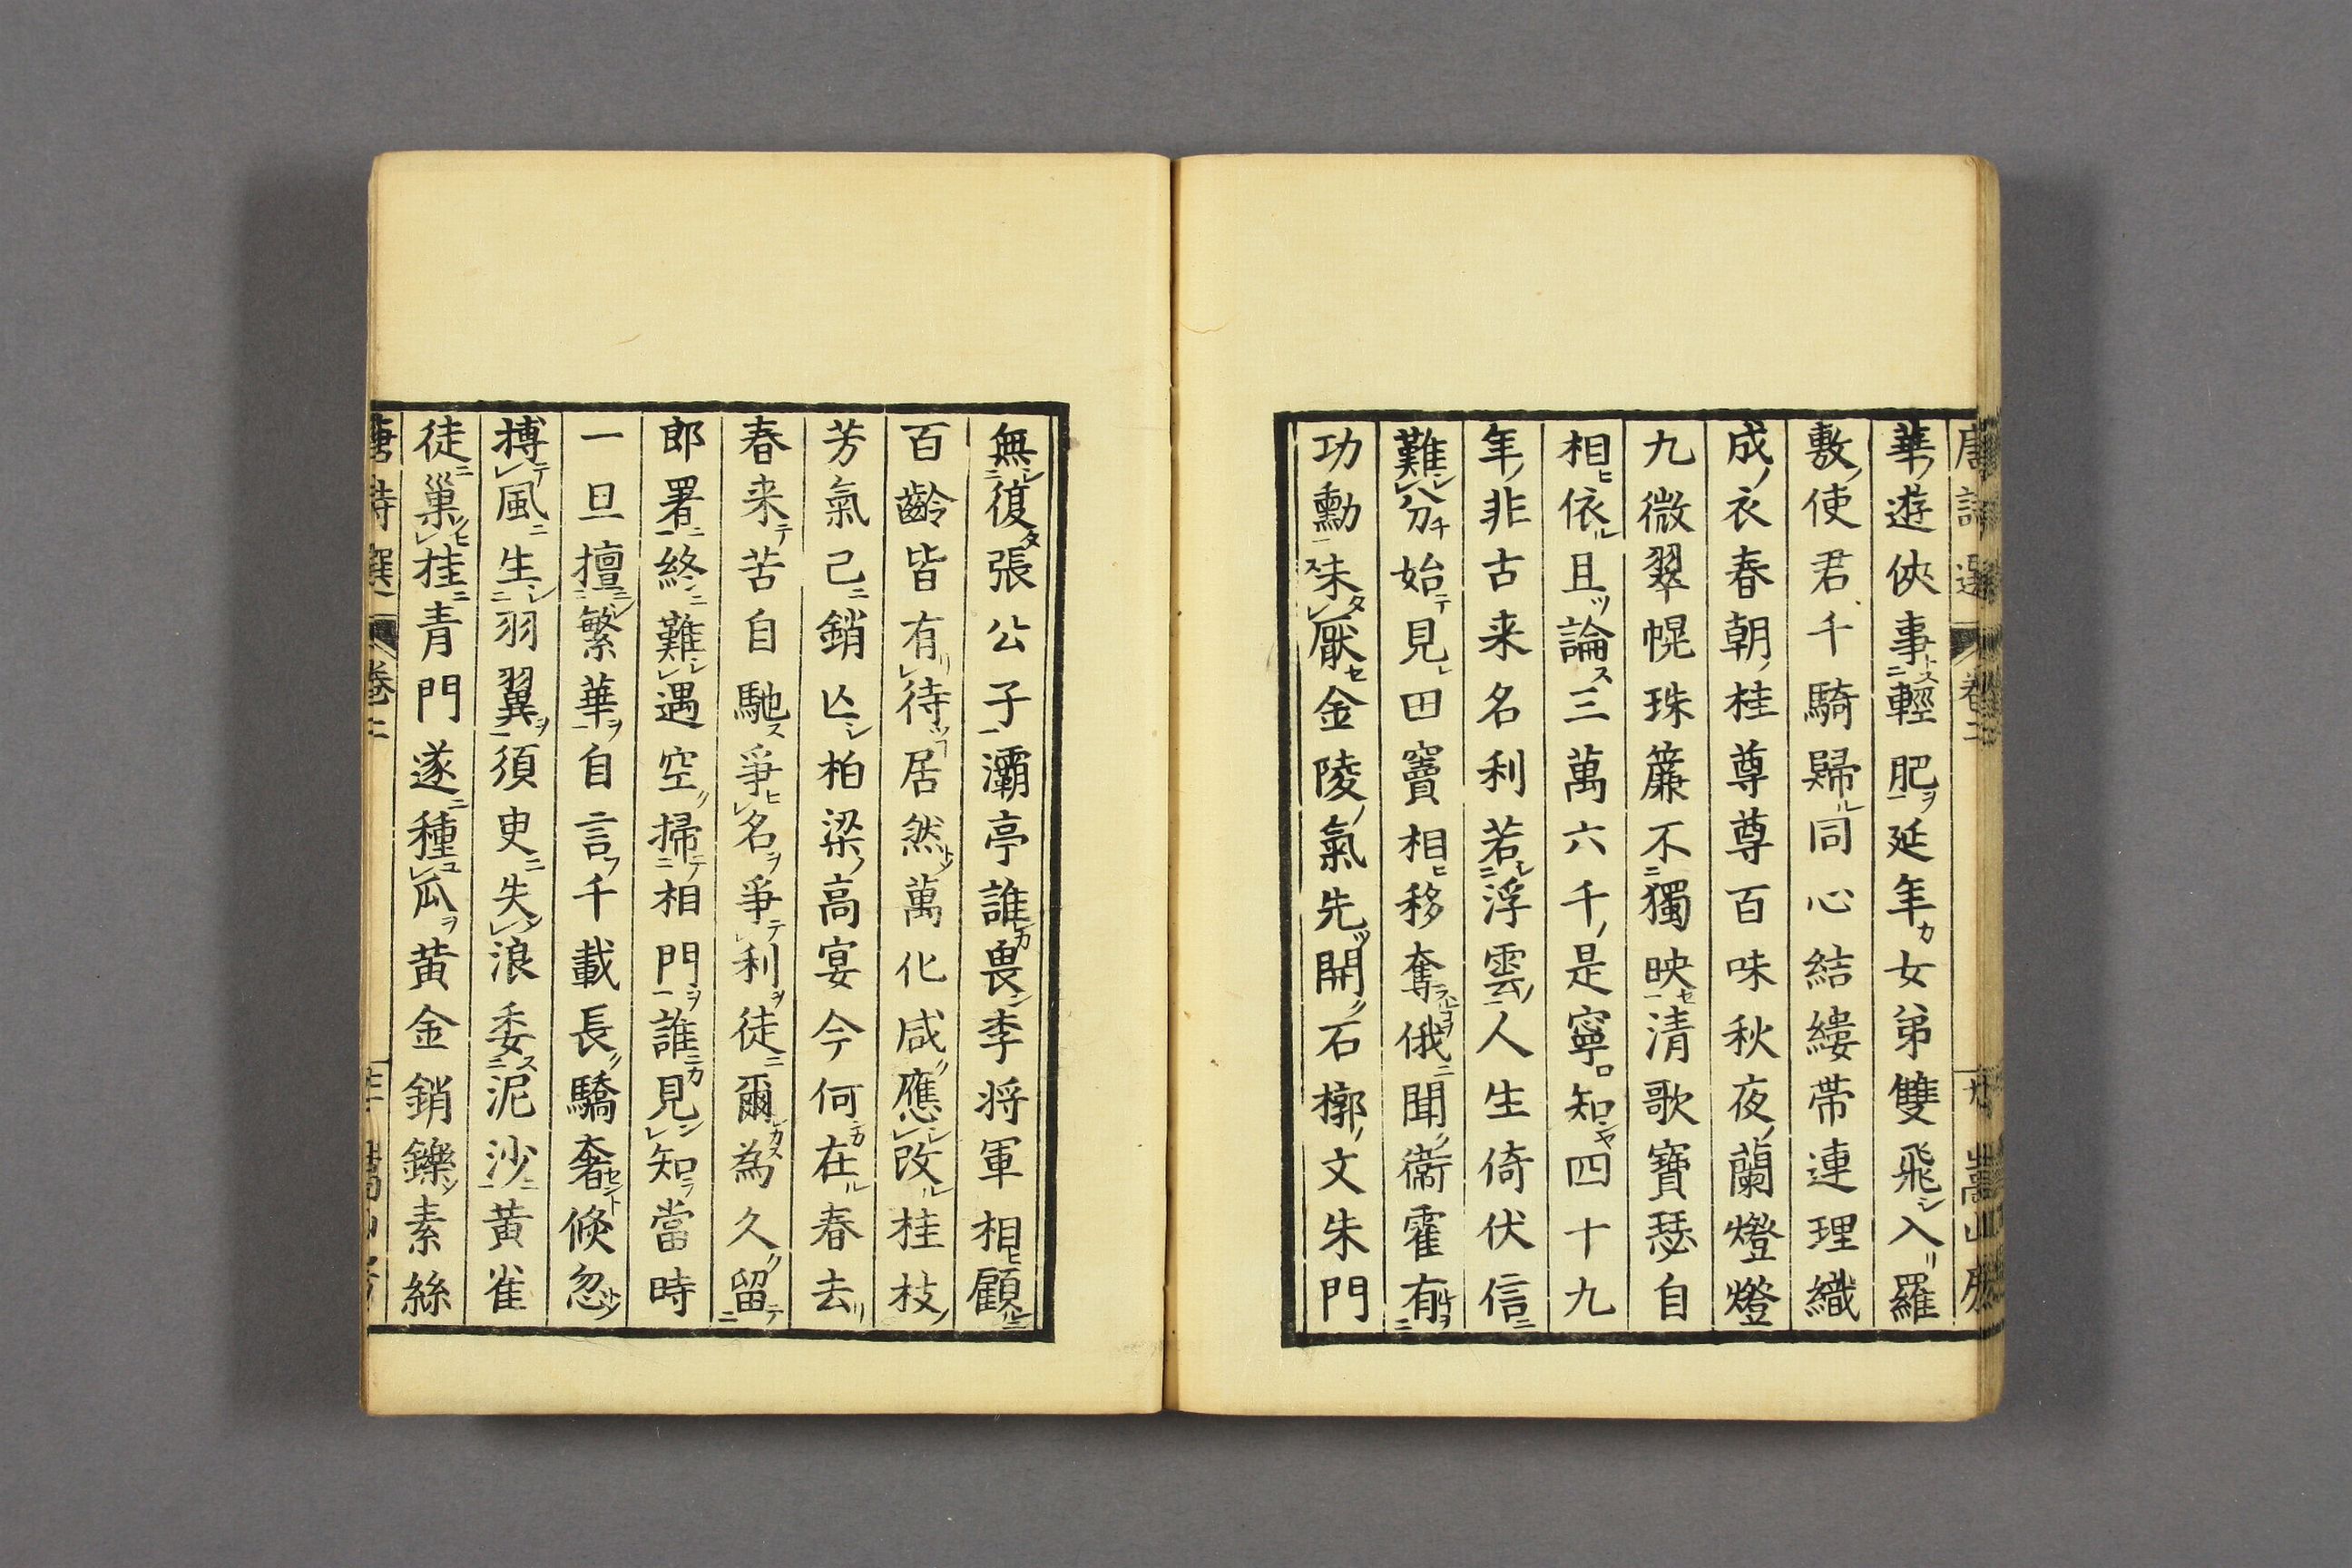 唐詩選 卷二 嵩山房
華遊俠事輕肥延年女弟雙飛入羅
敷使君千騎歸同心結縷帶連理織
成衣春朝桂尊尊百味秋夜蘭燈燈
九微翠幌珠簾不獨映清歌寶瑟自
相依且論三萬六千是寧知四十九
年非古来名利若浮雲人生倚伏信
難分始見田竇相移奪俄聞衞霍有
功勳未厭金陵氣先開石槨文朱門
無復張公子灞亭誰畏李将軍相顧
百齡皆有待居然萬化咸應改桂枝
芳氣已銷亾柏梁高宴今何在春去
春来苦自馳爭名爭利徒爾為久留
郎署終難遇空掃相門誰見知當時
一旦擅繁華自言千載長驕奢倏忽
搏風生羽翼須臾失浪委泥沙黄雀
徒巢桂青門遂種瓜黄金銷鑠素絲
唐詩選 卷二